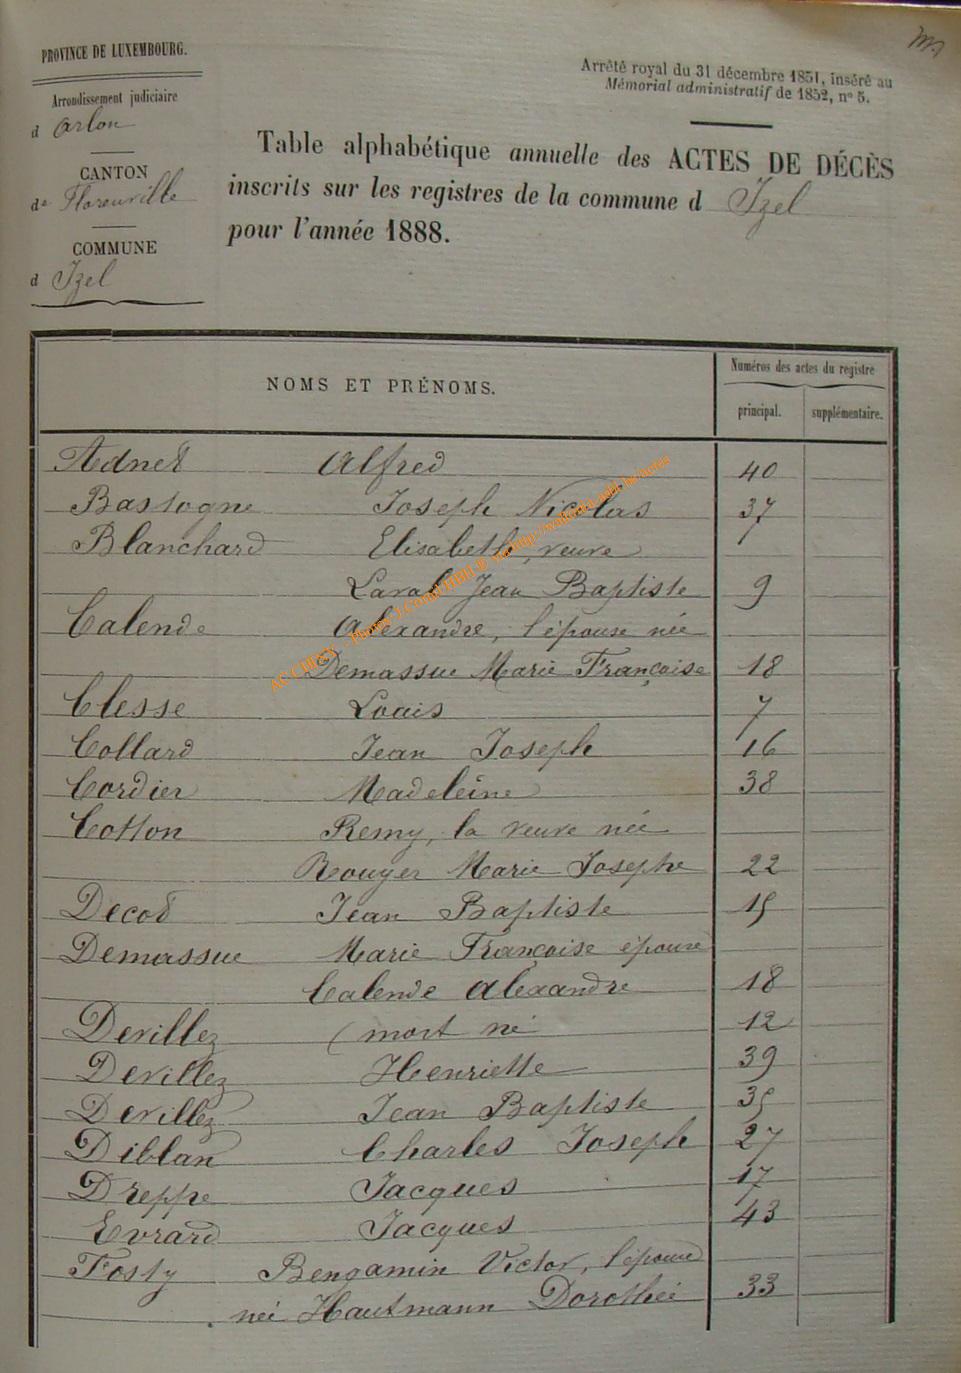 PROVINCE DE LUXEMBOURG.
Arrondissement judiciaire
d Arlon
CANTON
de Florenville
COMMUNE
d Izel
Arrêté royal du 31 décembre 1851, inséré au
Mémorial administratif de 1852, n° 5.
Table alphabétique annuelle des ACTES DE DÉCÈS
inscrits sur les registres de la commune d Izel
pour l'année 1888.
NOMS ET PRÉNOMS.
Numéros des actes du registre
principal. supplémentaire.
Adnet Alfred 40
Bastogne Joseph Nicolas 37
Blanchard Elisabeth, veuve
Laval Jean Baptiste 9
Calende Alexandre, l'épouse née
Demassue Marie Françoise 18
Clesse Louis 7
Collard Jean Joseph 16
Cordier Madeleine 38
Cotton Remy, la veuve née
Rouyer Marie Josephe 22
Decod Jean Baptiste 15
Demassue Marie Françoise épouse
Calende Alexandre 18
Devillez (mort né 12
Devillez Henriette 39
Devillez Jean Baptiste 35
Diblan Charles Joseph 27
Dreppe Jacques 17
Evrard Jacques 43
Fosty Bengamin Victor, l'épouse
née Hautmann Dorothée 33